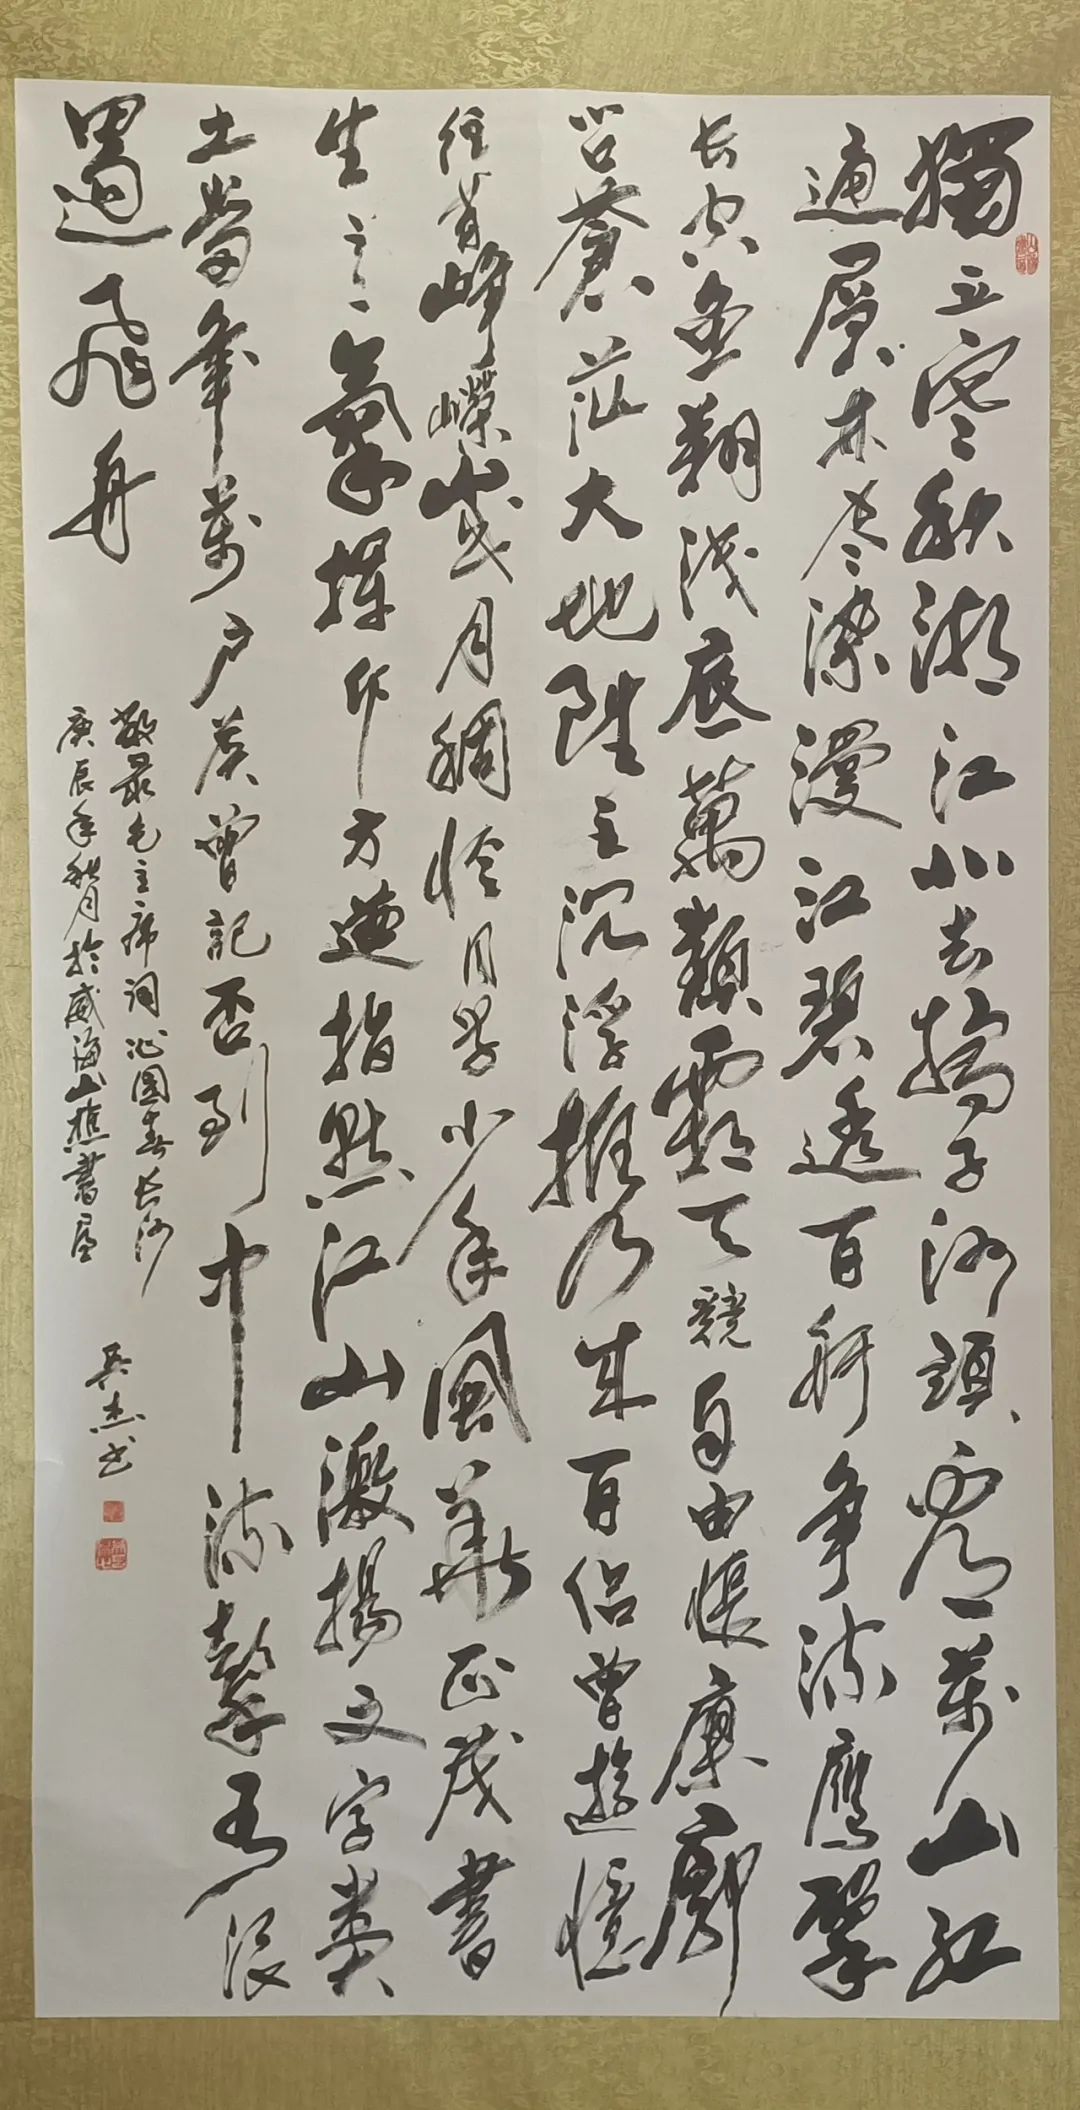 獨立寒秋湘江北去橘子洲頭看萬山紅
遍層林尽染漫江碧透百舸爭流鷹擊
长空魚翔浅底萬類霜天競自由悵廖廓
问蒼茫大地誰主沉浮携来百侣曾遊憶
往昔崢嶸歲月稠恰同学少年風華正茂書
生意氣揮斥方遒指點江山激揚文字糞
土當年萬户侯曾記否到中流擊水浪
遏飛舟
敬录毛主席词沁園春长沙
庚辰年秋月於威海山樵書屋
吴杰书